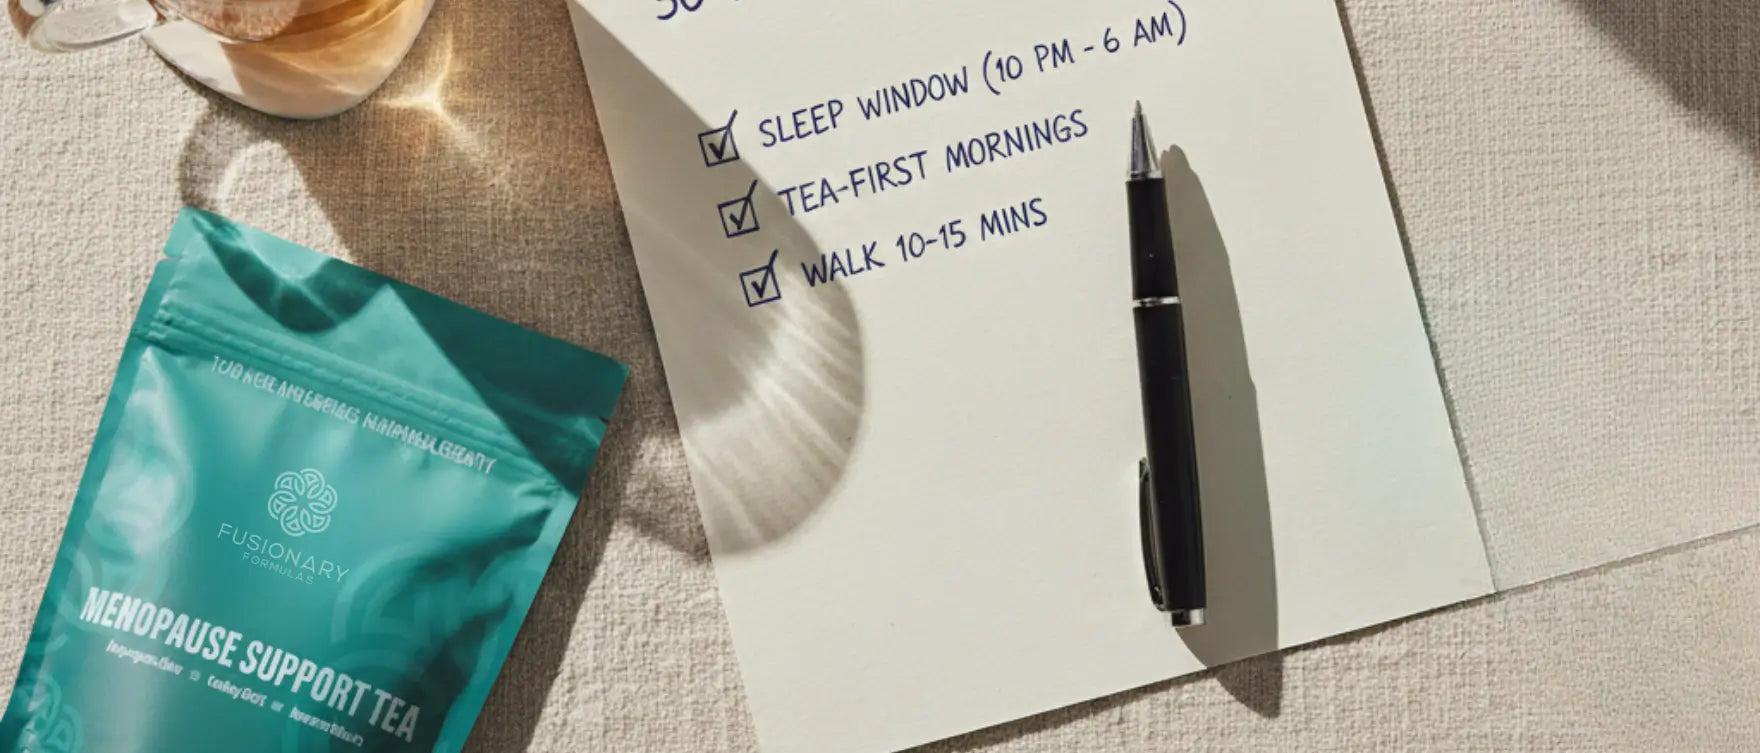 SLEEP WINDOW (10 PM - 6 AM)
TEA-FIRST MORNINGS
WALK 10-15 MINS
FUSIONARY
FORMULAS
MENOPAUSE SUPPORT TEA